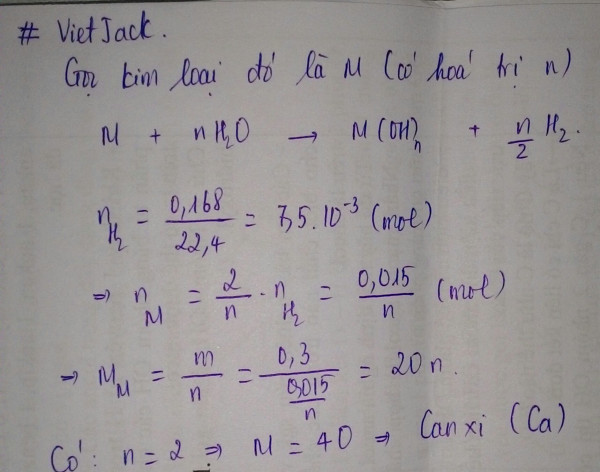 # VietJack.
Gọi kim loại đó là M (có hoá trị n)
M + nH₂O → M(OH)ₙ + n/2 H₂.
n_H₂ = 0,168/22,4 = 7,5.10⁻³ (mol)
⇒ n_M = 2/n · n_H₂ = 0,015/n (mol)
⇒ M_M = m/n = 0,3/(0,015/n) = 20n.
Có: n = 2 ⇒ M = 40 ⇒ Canxi (Ca)